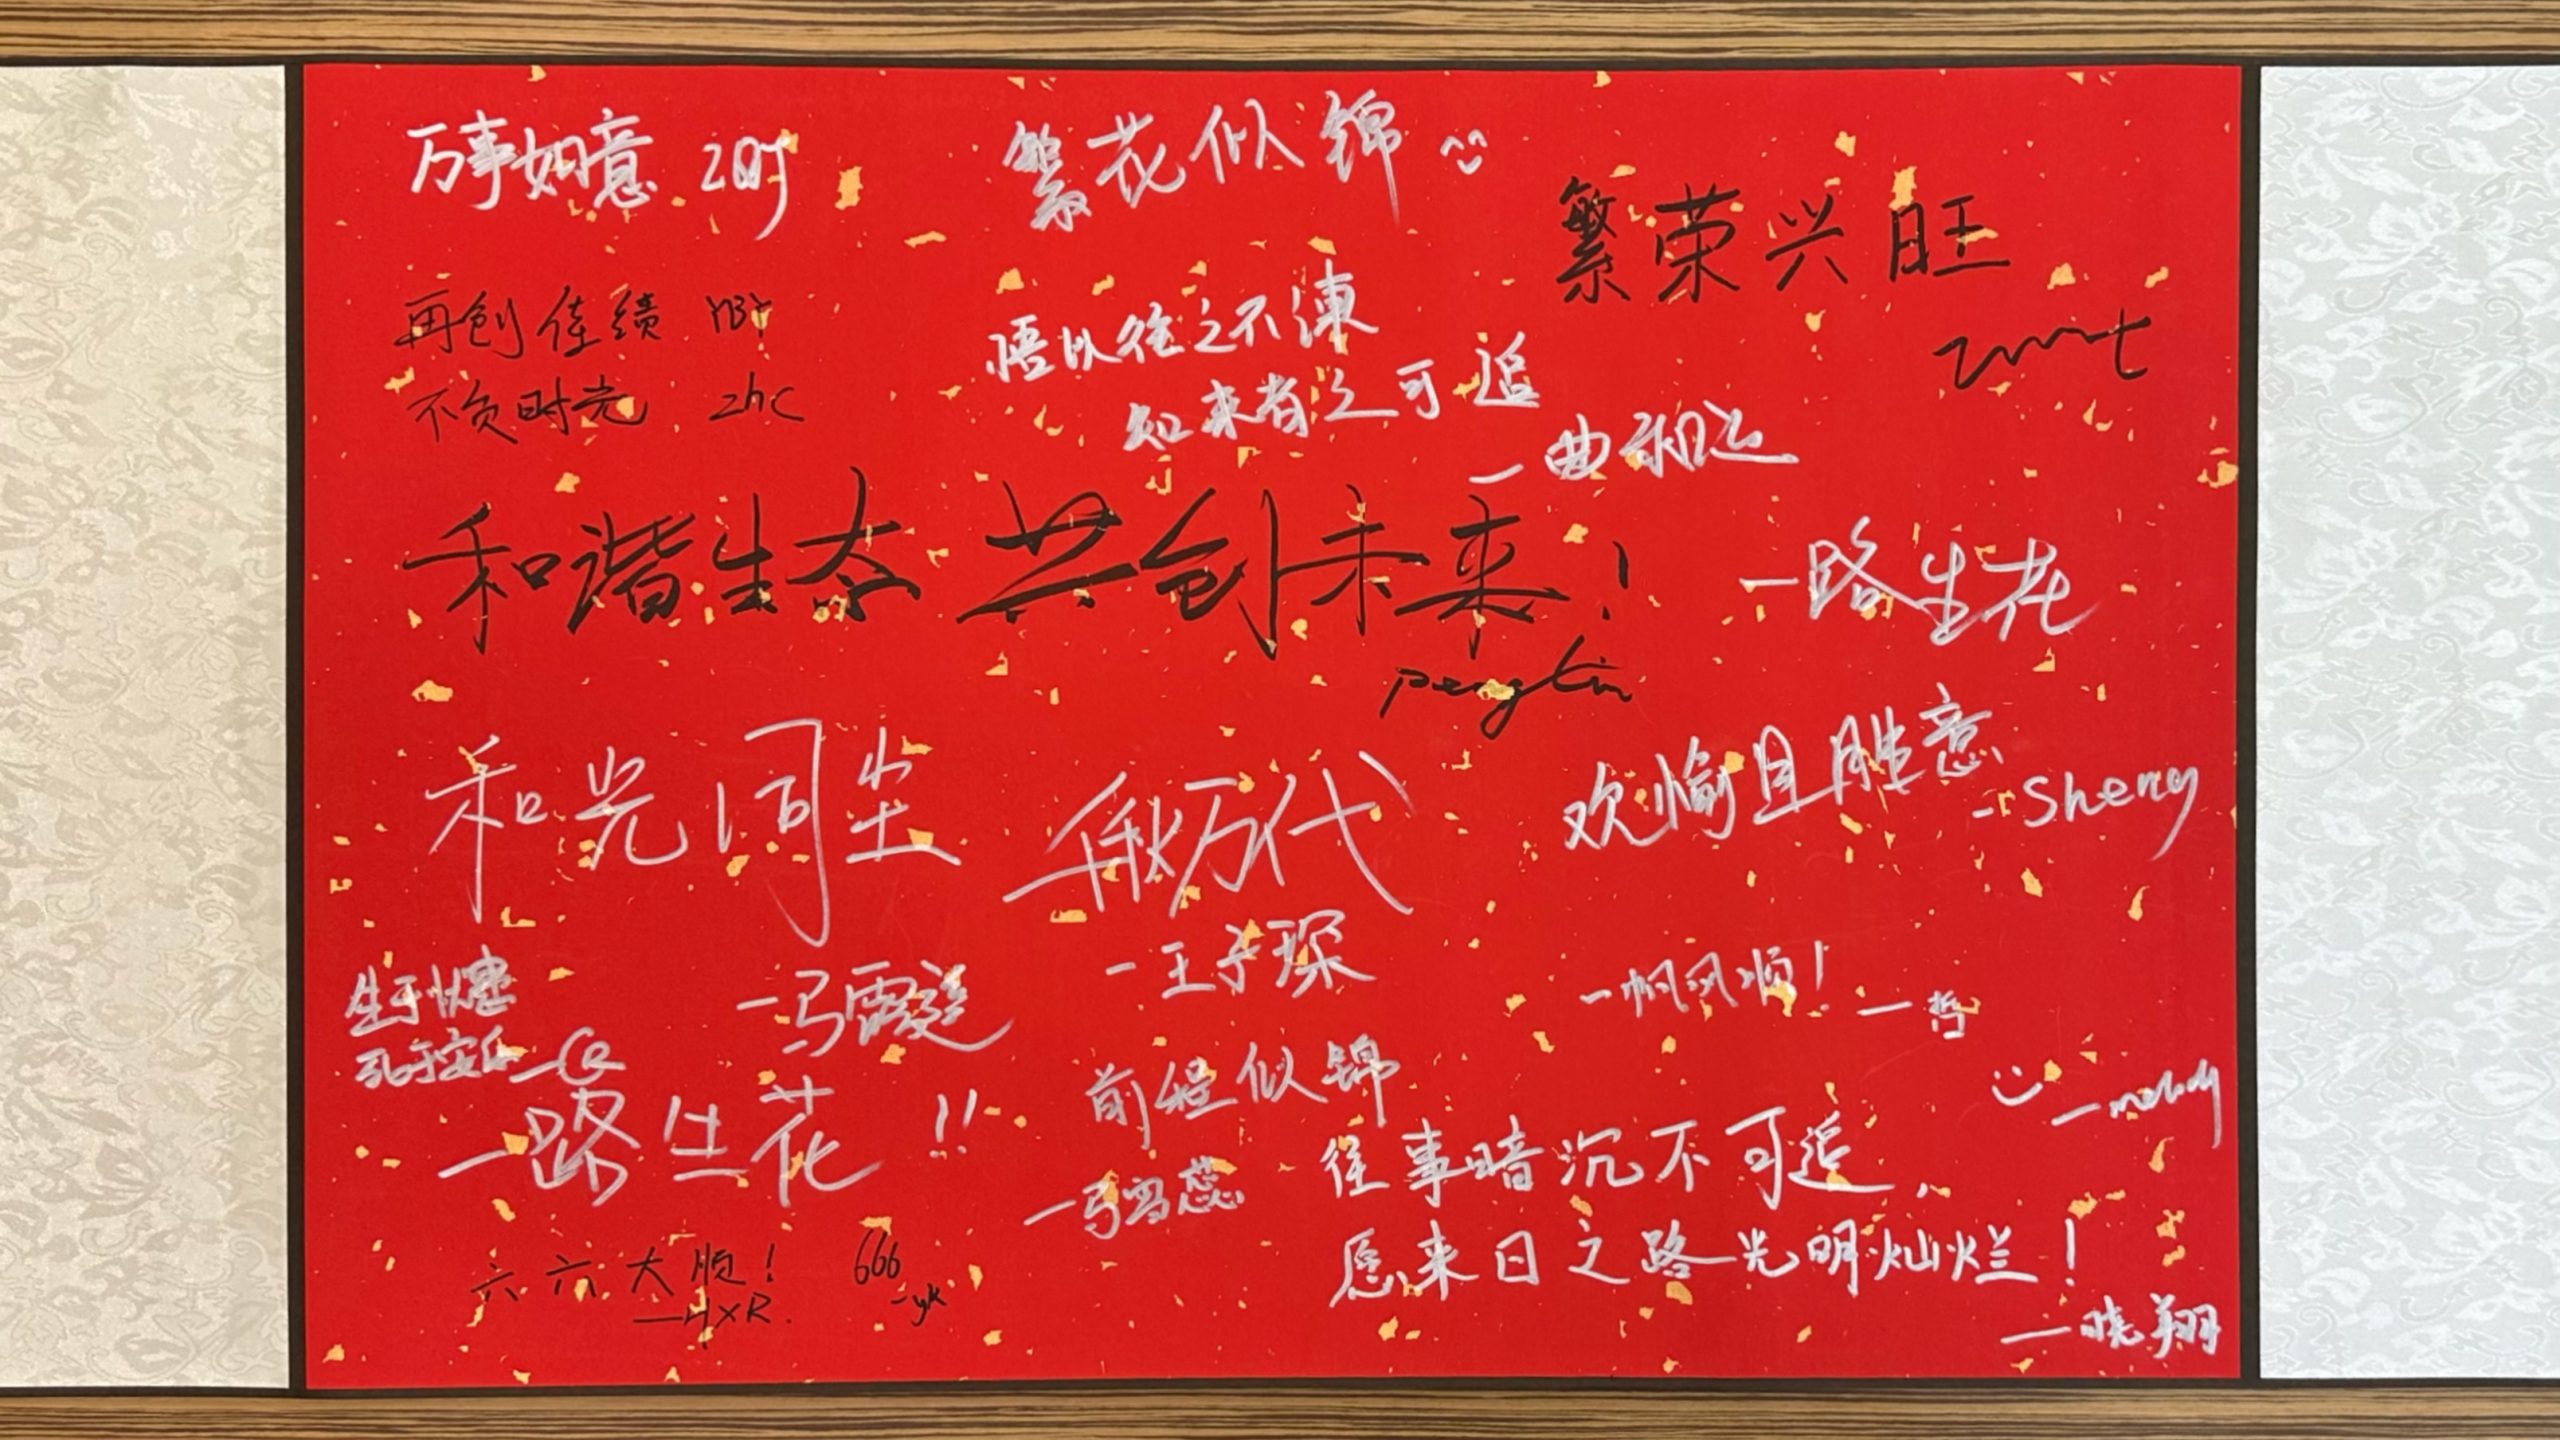 万事如意
繁花似锦
繁荣兴旺
再创佳绩
不负时光 zhc
悟以往之不谏
知来者之可追
和谐生态 共创未来!
一路生花
和光同尘
千秋万代
—王子琛
欢愉且胜意
-Sheng
生于忧患
死于安乐
—马霆
一帆风顺!
—哲
前程似锦
一路生花!!
—melody
往事暗沉不可追,
愿来日之路光明灿烂!
—晓翔
六六大顺!
—HXR.
666
-yk